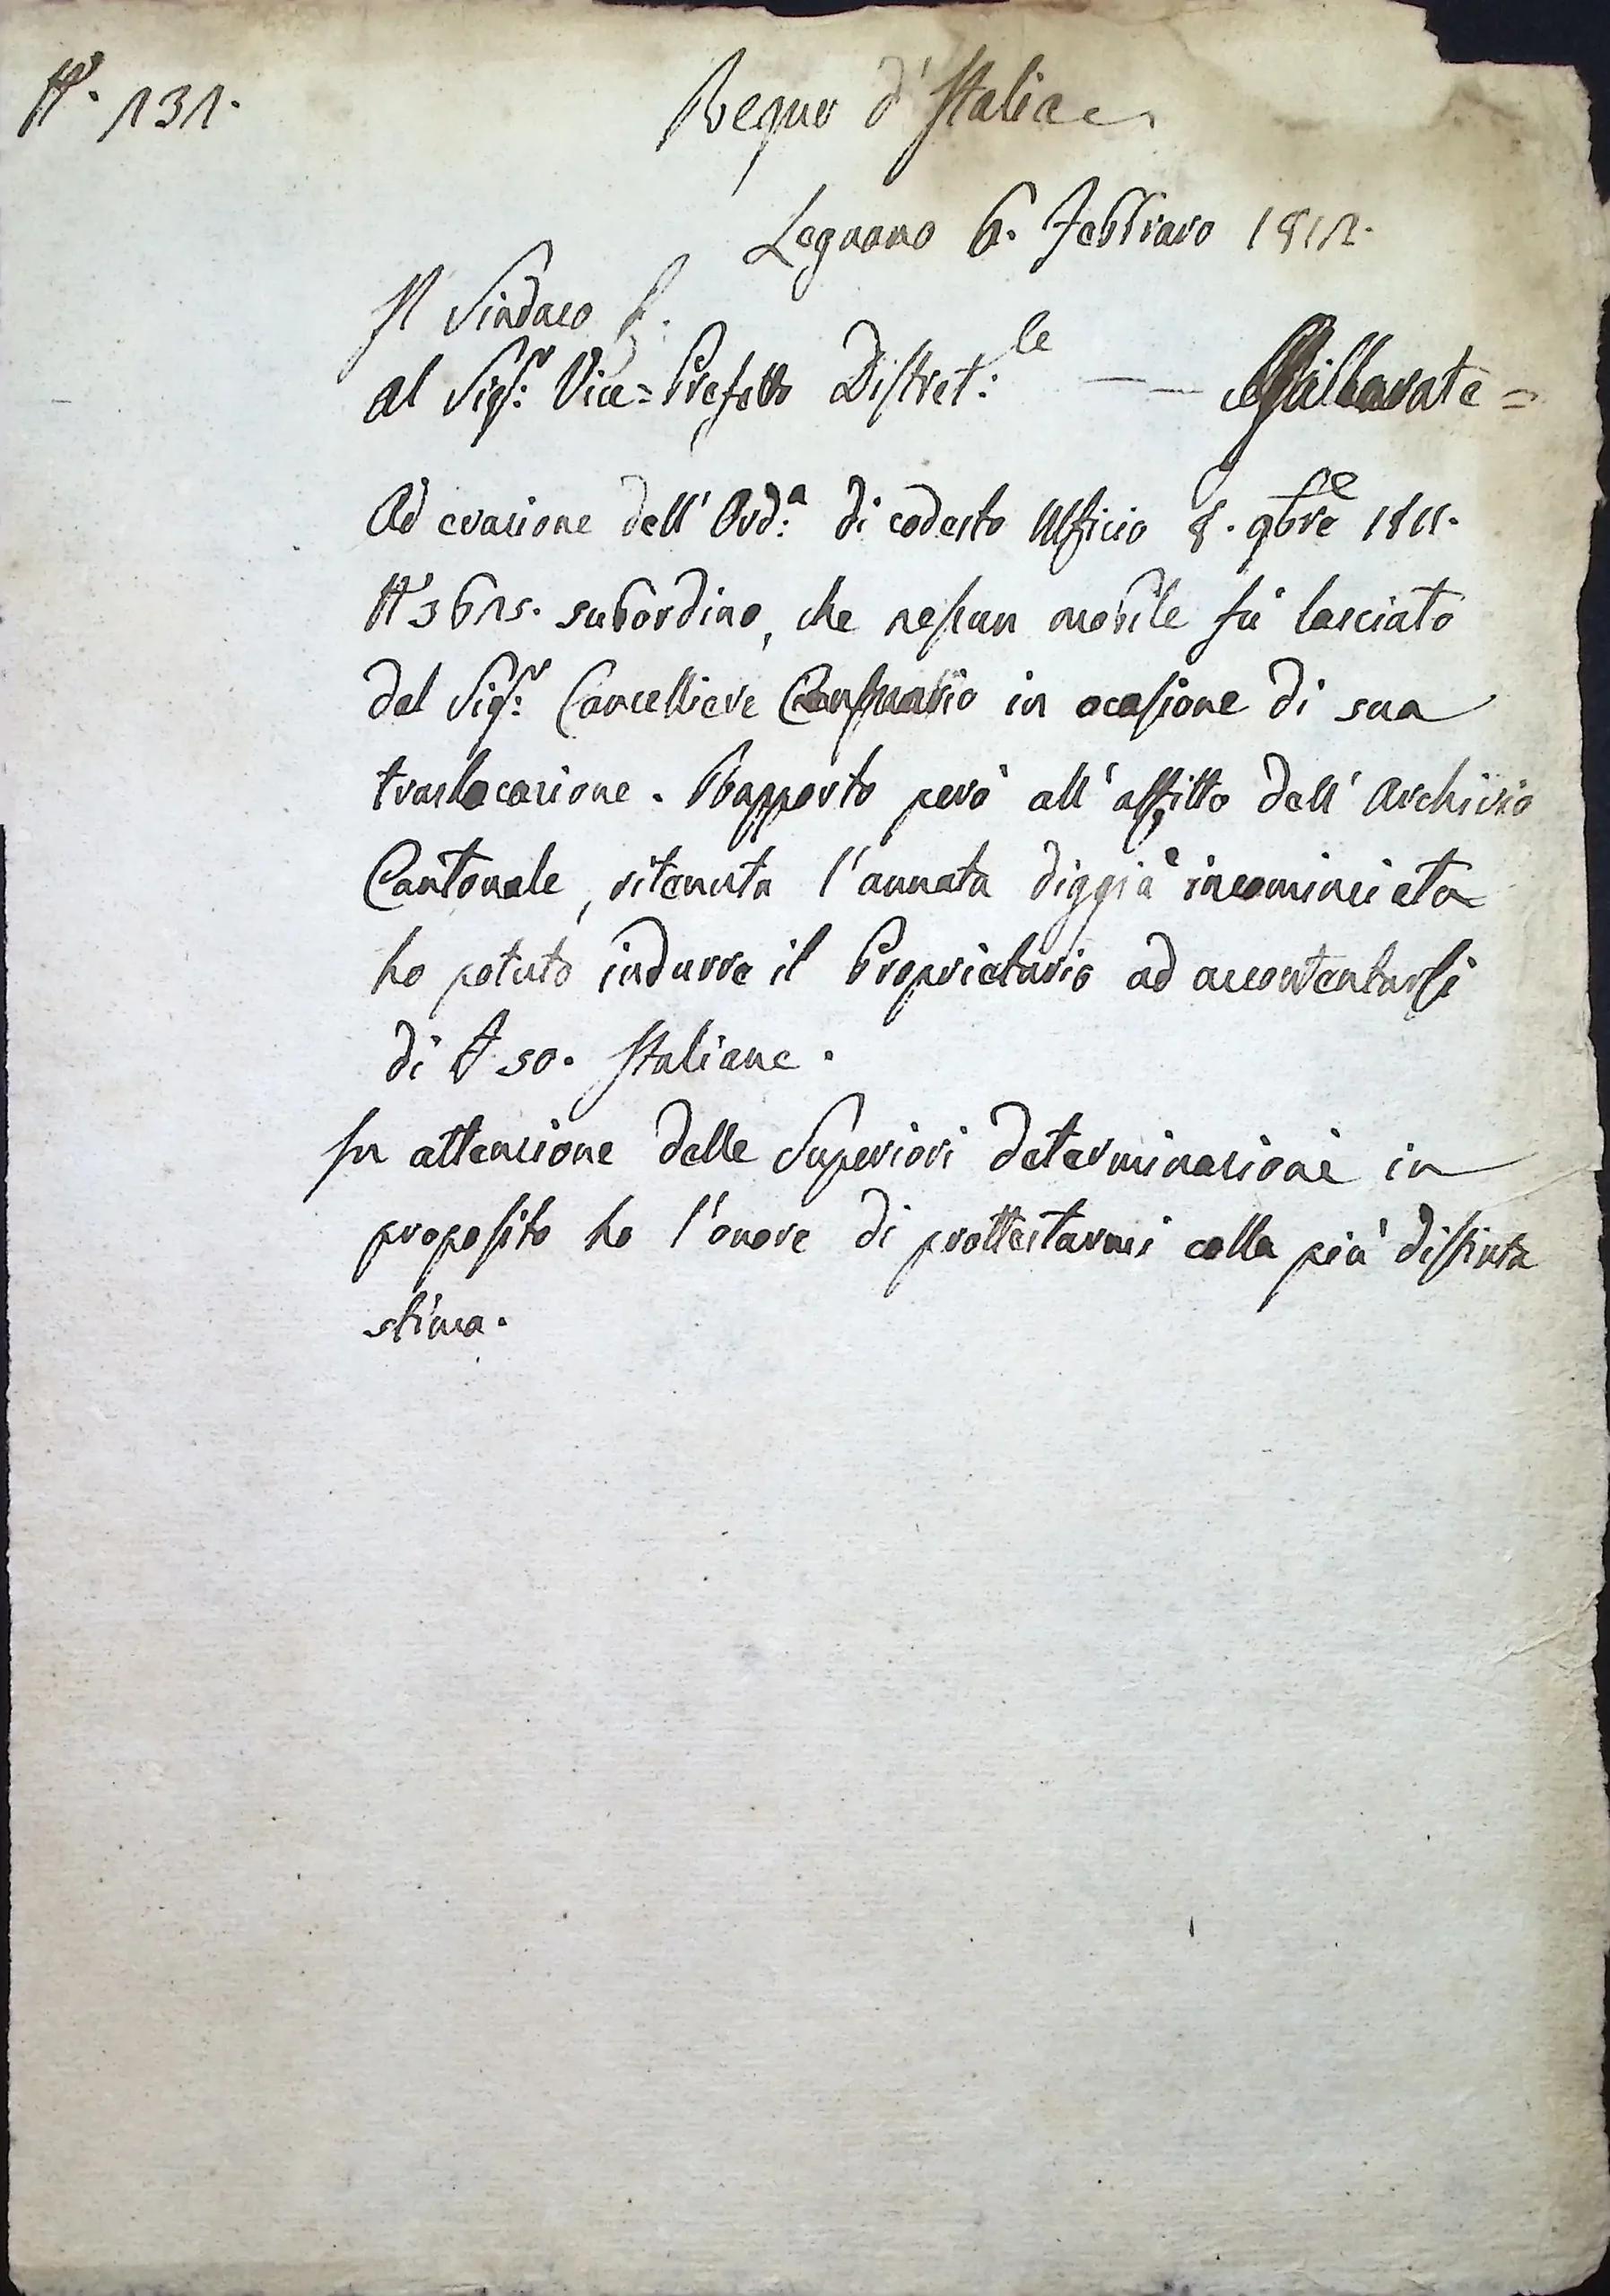 N.° 131.
Regno d'Italia
Legnano 6. Febbraro 1812.
Il Sindaco
al Sig.r Vice=Prefetto Distret.le —— Gallarate=
Ad evasione dell'Ord.a di codesto Ufficio 8. 9bre 1811.
N.° 3615. subordino, che nessun mobile fù lasciato
dal Sig.r Cancelliere Censuario in ocasione di sua
traslocazione. Rapporto però all'affitto dell'Archivio
Cantonale, ritenuta l'annata diggià incominciata
ho potuto indurre il Proprietario ad accontentarsi
di £ 50. Italiane.
In attenzione delle Superiori determinazioni in
proposito ho l'onore di prottestarmi colla più distinta
stima.